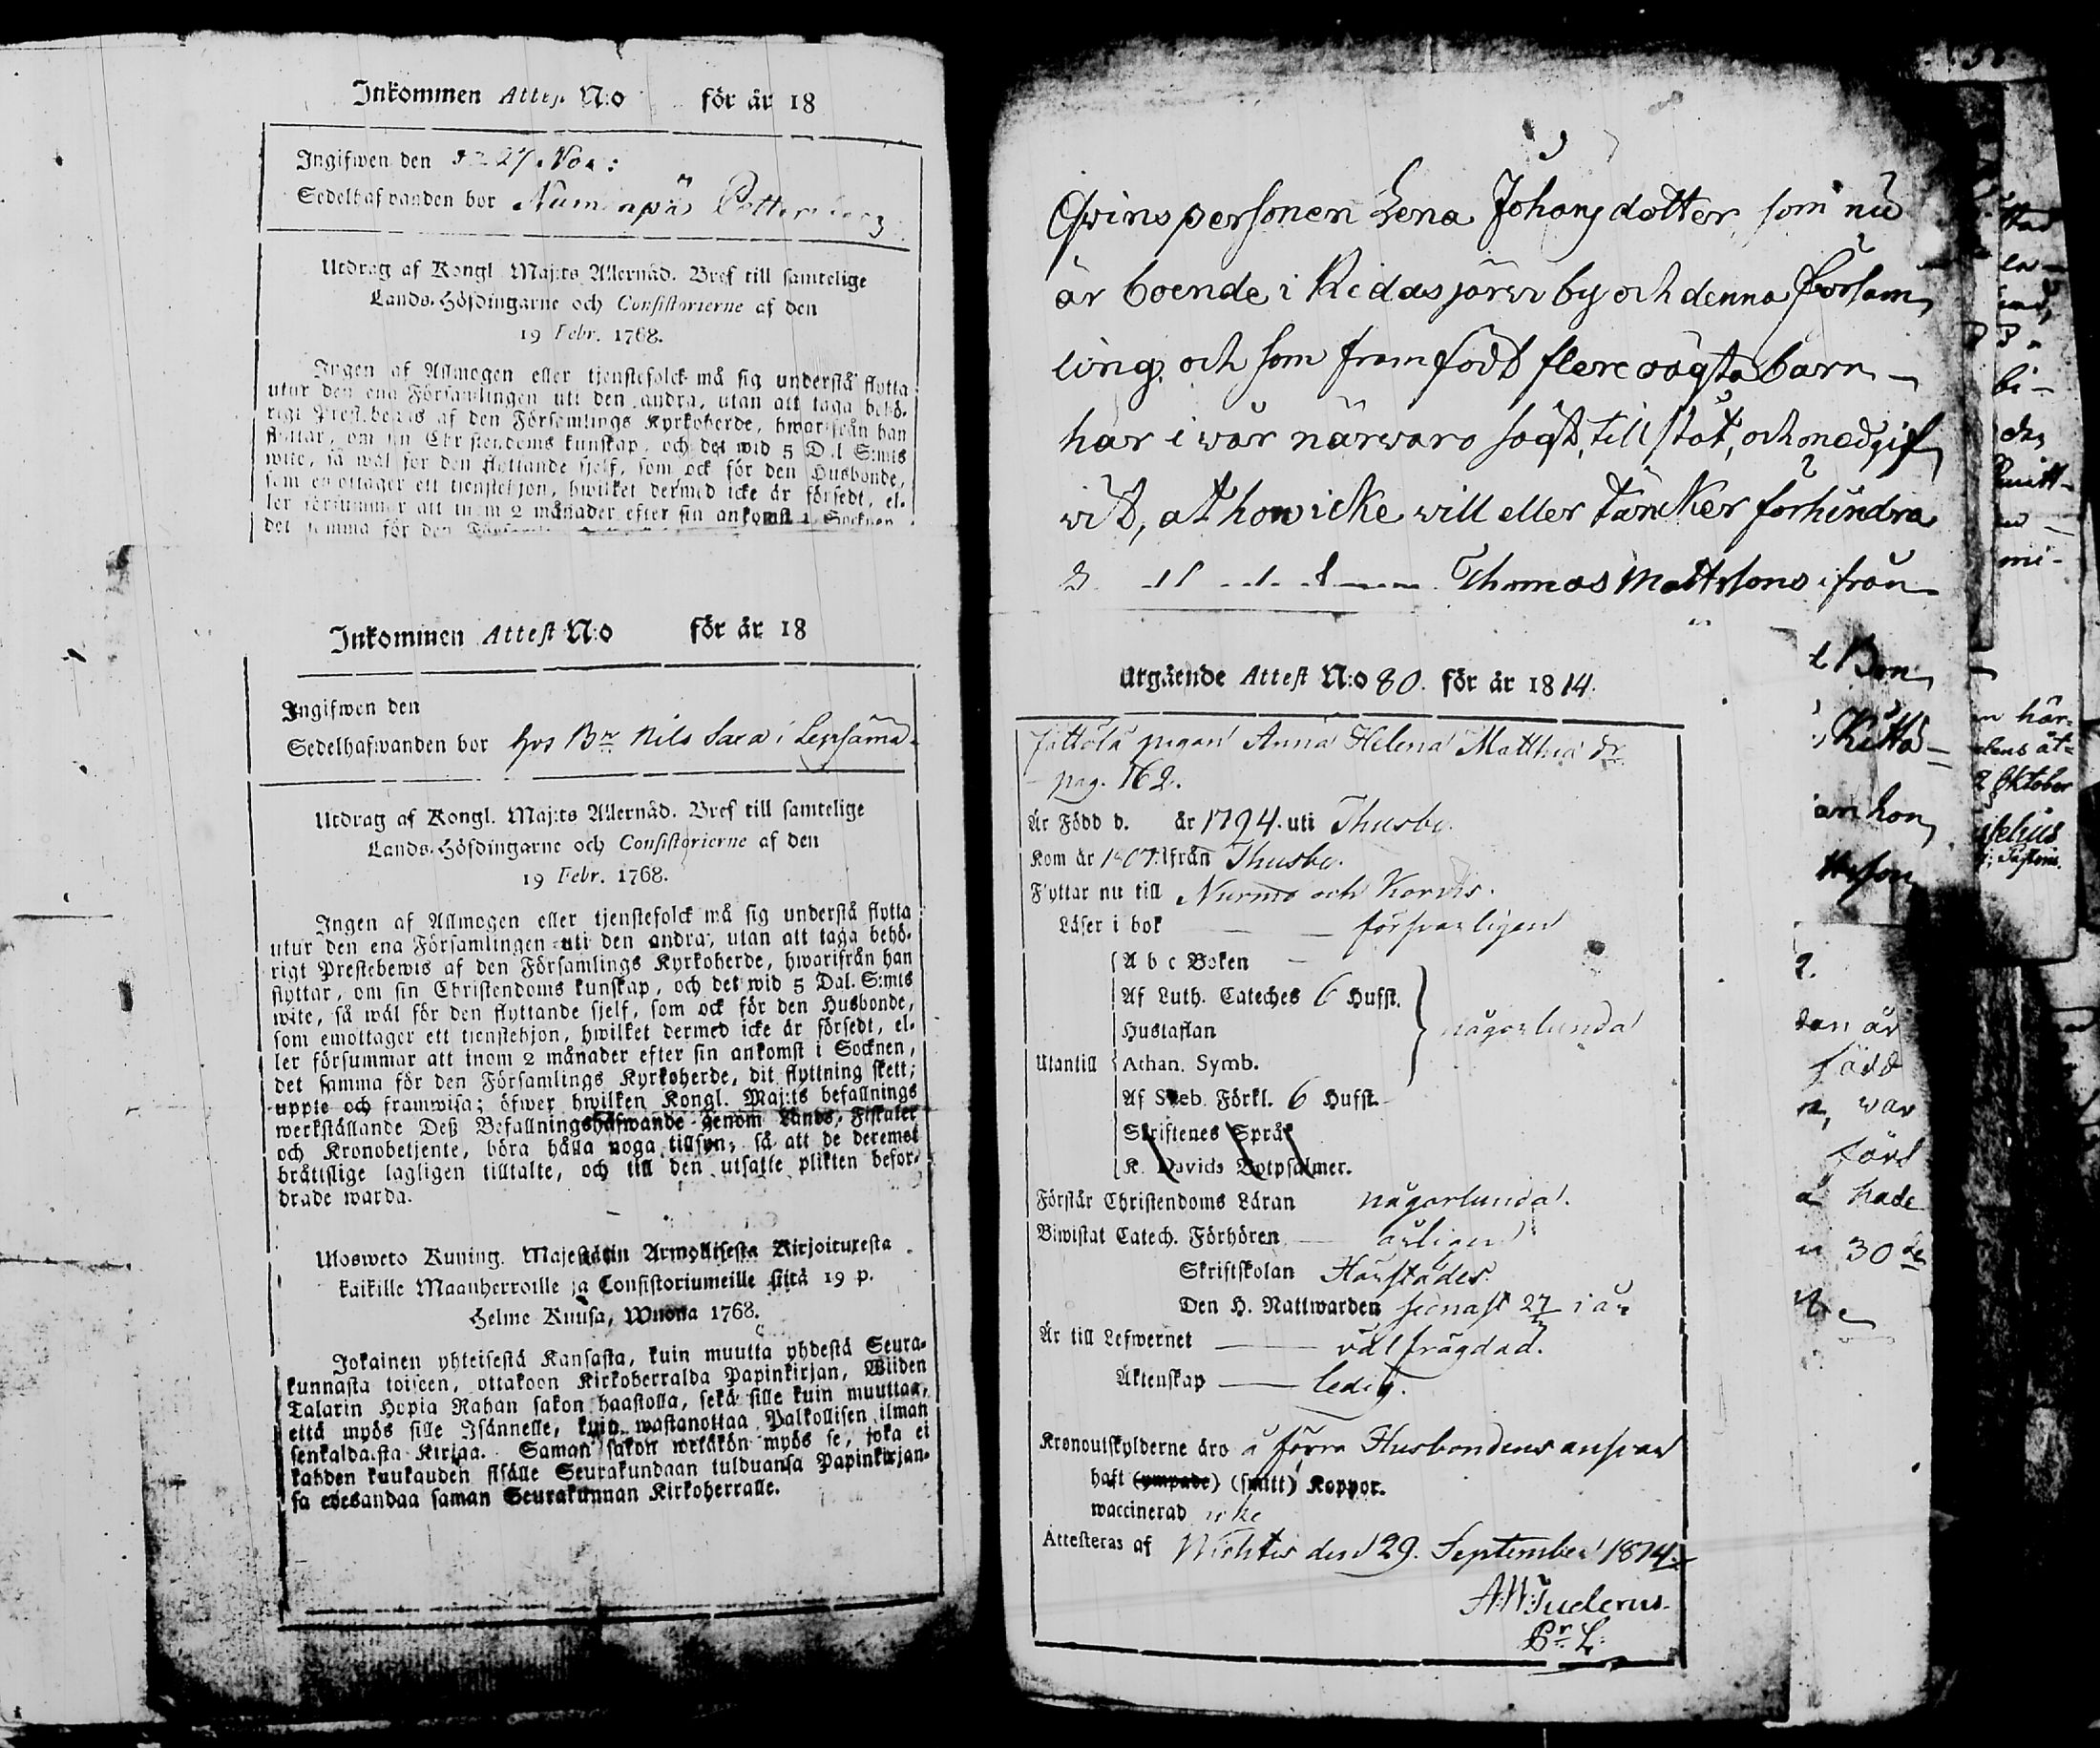 Inkommen Attest N:o för år 18
Ingifwen den 27. Nov:
Sedelhafwanden bor
Utdrag af Kongl. Maj:ts Allernåd. Bref till samtelige
Lands-Höfdingarne och Consistorierne af den
19 Febr. 1768.
Ingen af Allmogen eller tjenstefolck må sig understå flytta
utur den ena Församlingen uti den andra, utan att taga behö-
rigt Prestebewis af den Församlings Kyrkoherde, hwarifrån han
flyttar, om sin Christendoms kunskap, och det wid 5 Dal S:mts
wite, så wäl för den flyttande sjelf, som ock för den Husbonde,
som emottager ett tjenstehjon, hwilket dermed icke är försedt, el-
ler försummar att inom 2 månader efter sin ankomst i Socknen,
det samma för den
Inkommen Attest N:o för år 18
Ingifwen den
Sedelhafwanden bor hos Bn Nils Sara i Lepsämä.
Utdrag af Kongl. Maj:ts Allernåd. Bref till samtelige
Lands-Höfdingarne och Consistorierne af den
19 Febr. 1768.
Ingen af Allmogen eller tjenstefolck må sig understå flytta
utur den ena Församlingen uti den andra, utan att taga behö-
rigt Prestebewis af den Församlings Kyrkoherde, hwarifrån han
flyttar, om sin Christendoms kunskap, och det wid 5 Dal. S:mts
wite, så wäl för den flyttande sjelf, som ock för den Husbonde,
som emottager ett tienstehjon, hwilket dermed icke är försedt, el-
ler försummar att inom 2 månader efter sin ankomst i Socknen,
det samma för den Församlings Kyrkoherde, dit flyttning skett;
uppte och framwisa; öfwer hwilken Kongl. Maj:ts befallnings
werkställande Deß Befallningshafwande genom Lands-Fiskaler
och Kronobetjente, böra hålla noga tillsyn, så att de deremot
bråttslige lagligen tilltalte, och till den utsatte plikten befor-
drade warda.
Ulosweto Kuning. Majestätin Armollisesta Kirjoituxesta
kaikille Maanherroille ja Consistoriumeille siitä 19 p.
Helme Kuusa, Wuonna 1768.
Jokainen yhteisestä Kansasta, kuin muutta yhdestä Seura-
kunnasta toiseen, ottakoon Kirkoherralda Papinkirjan, Wiiden
Talarin Hopia Rahan sakon haastolla, sekä sille kuin muuttaa,
että myös sille Isännelle, kuin wastanottaa Palkollisen ilman
senkaldaista Kirjaa. Saman sakon wetäkön myös se, joka ei
kahden kuukauden sisälle Seurakundaan tulduansa Papinkirjan-
sa edesandaa saman Seurakunnan Kirkoherralle.
Qvinspersonen Lena Johansdotter, som nu
är boende i Ridasjärwi by och denna försam-
ling, och som framfödt flere oägta barn
har i wår närwaro sagt, tillstått, och medgif-
wit, at hon icke will eller täncker förhindra
Thomas Mattssons ifrån
Utgående Attest N:o 80. för år 1814.
pigan Anna Helena Matthsdr
pag. 162.
Är Född d. år 1794. uti Thusby.
Kom år 1807 ifrån Thusby.
Flyttar nu till Nurmo och Kortis.
Läser i bok försvarligen
A b c Boken
Af Luth. Cateches 6 Hufst.
Hustaflan någorlunda
Utantill Athan. Symb.
Af Sweb. Förkl. 6 Hufst.
Skriftenes Språk
K. Davids Botpsalmer.
Förstår Christendoms Läran någorlunda.
Biwistat Catech. Förhören årligen
Skriftskolan Härstädes.
Den H. Nattwarden senast 27 i år
Är till Lefwernet väl frägdad.
Äktenskap ledig.
Kronoutskylderne äro å förra Husbondens ansvar
haft (ympade) (smitt) Koppor.
waccinerad icke
Attesteras af Wichtis den 29. September 1814.
A.W. Tuderus.
t Bon
Kitto
an hon
tsson
2.
dan är
född
war
förd
hade
30de
tad
bi-
mi-
här-
2 Oktober